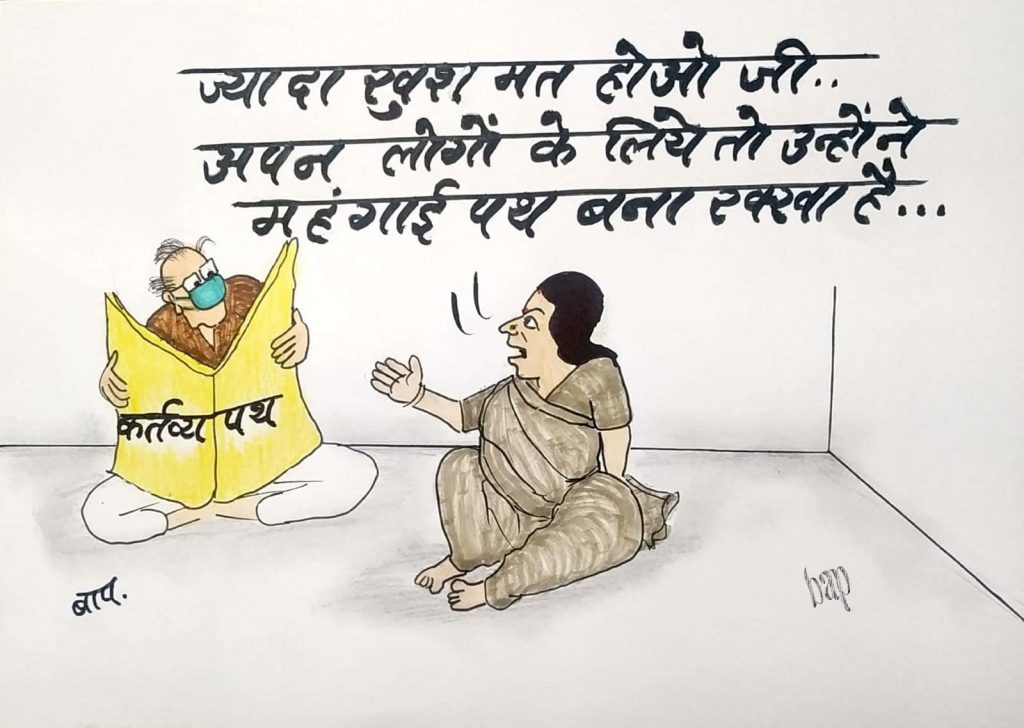 ज्यादा खुश मत होओ जी..
अपन लोगों के लिये तो उन्होंने
महंगाई पथ बना रक्खा है...
कर्तव्य पथ
बाप.
bap